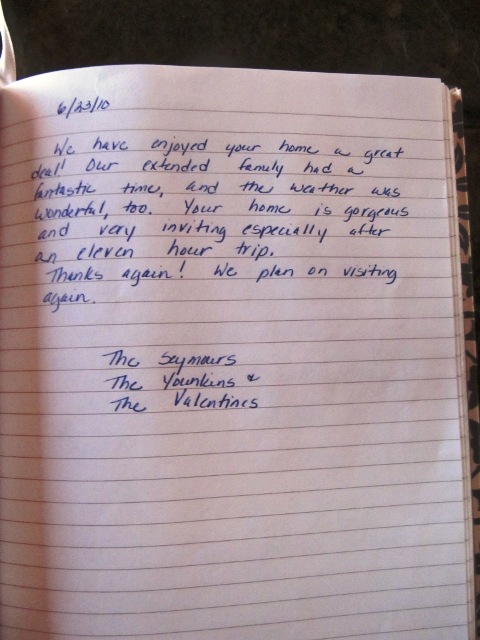 6/23/10
We have enjoyed your home a great
deal! Our extended family had a
fantastic time, and the weather was
wonderful, too. Your home is gorgeous
and very inviting especially after
an eleven hour trip.
Thanks again! We plan on visiting
again.
The Seymours
The Younkins &
The Valentines